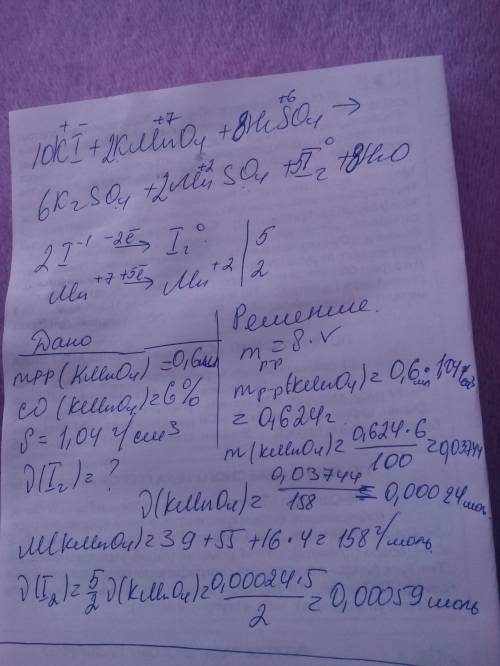 10KI + 2KMnO4 + 8H2SO4 →
6K2SO4 + 2MnSO4 + 5I2 + 8H2O
2I⁻¹ −2ē→ I2⁰ | 5
Mn⁺⁷ +5ē→ Mn⁺² | 2
Дано
mрр(KMnO4) = 0,6мл
ω(KMnO4) = 6%
ρ = 1,04 г/см³
ν(I2) = ?
Решение.
mр-р = ρ · V
mр-р(KMnO4) = 0,6 мл · 1,04
= 0,624г.
m(KMnO4) = 0,624·6/100 = 0,03744
ν(KMnO4) = 0,03744/158 = 0,00024моль
M(KMnO4) = 39 + 55 + 16·4 = 158 г/моль
ν(I2) = 5/2 ν(KMnO4) = 0,00024·5/2 = 0,00059 моль